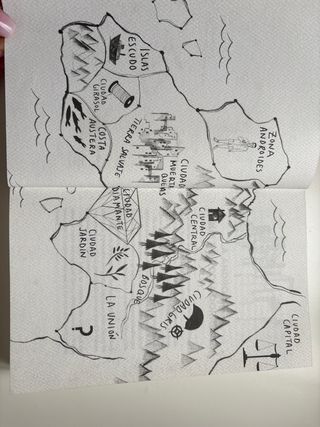 ZONA
ANDROIDES
CIUDAD
CAPITAL
ISLAS
ESCUDO
CIUDAD
MUERTA
CIUDAD
CENTRAL
CIUDAD GRIS
CIUDAD
GIRASOL
TIERRA SALVAJE
BOSQUE
COSTA
AUSTERA
CIUDAD
DIAMANTE
CIUDAD
JARDÍN
LA UNIÓN
?